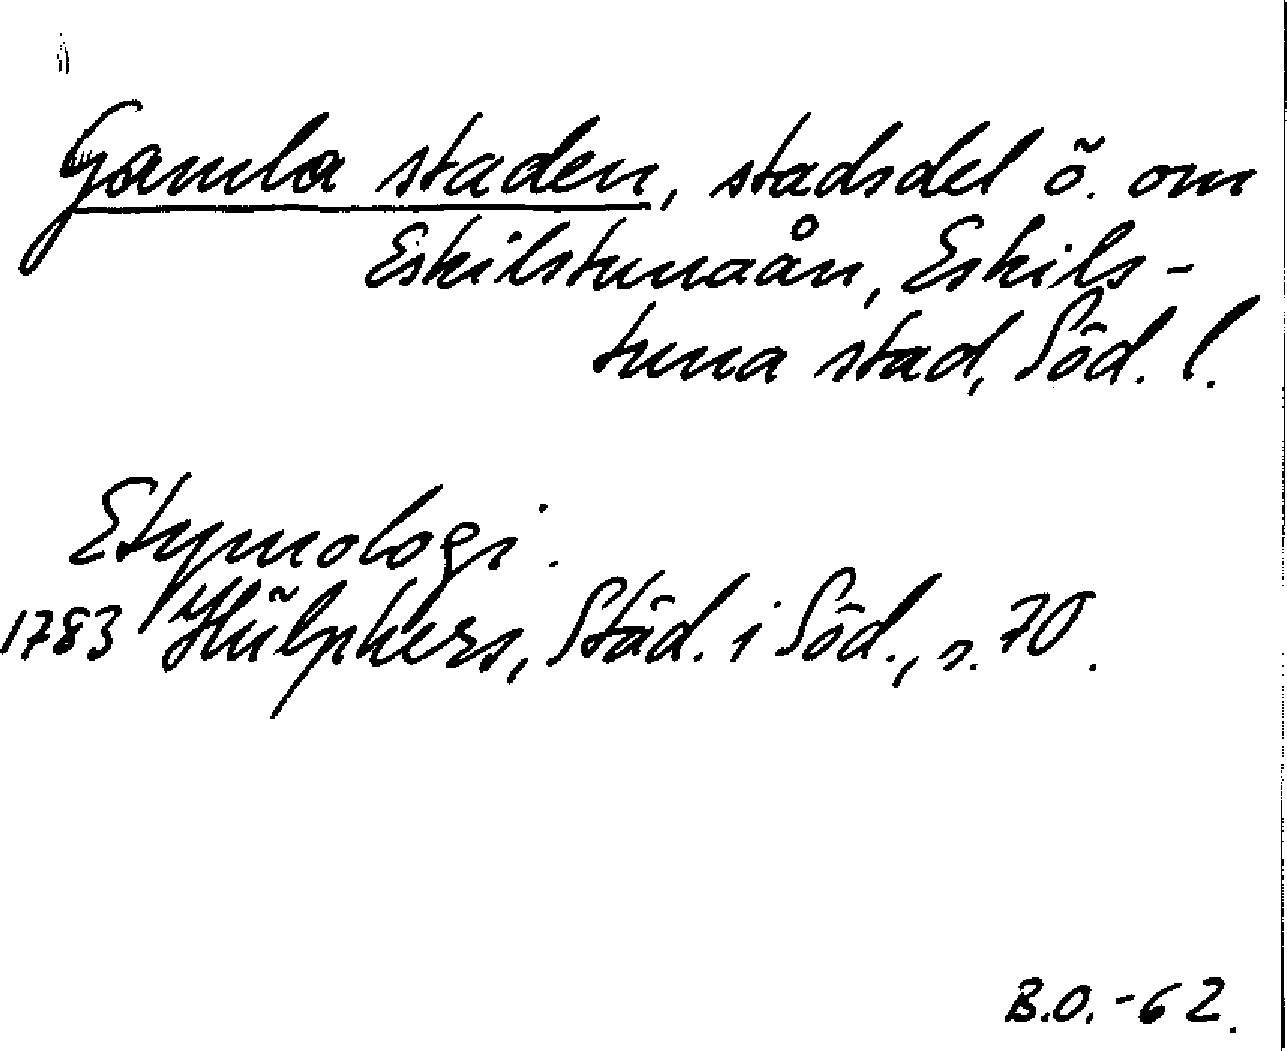 Gamla staden, stadsdel ö. om
Eskilstunaån, Eskils-
tuna stad, Söd. l.
Etymologi.
1783 Hülphers, Städ. i Söd., s. 70.
B.O. -62.